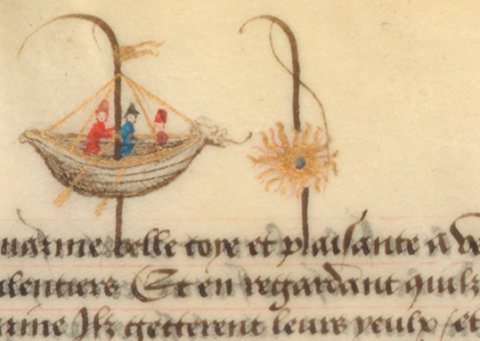 uarme belle coye et plaisante a ve
ulentiers Et en regardant quilz
arme Ilz getterent leurs yeulx / et